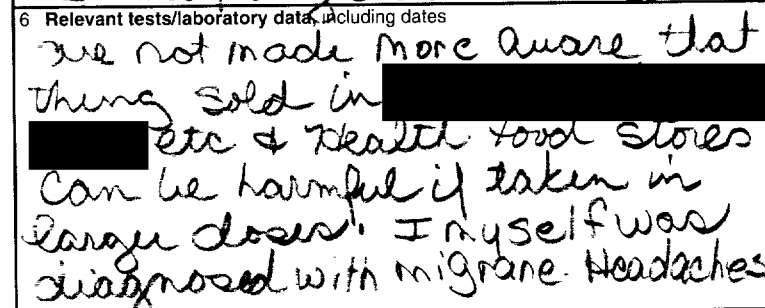 6 Relevant tests/laboratory data, including dates
are not made more aware that
thing sold in
etc & Health food stores
can be harmful if taken in
larger doses! I myself was
diagnosed with migrane Headaches